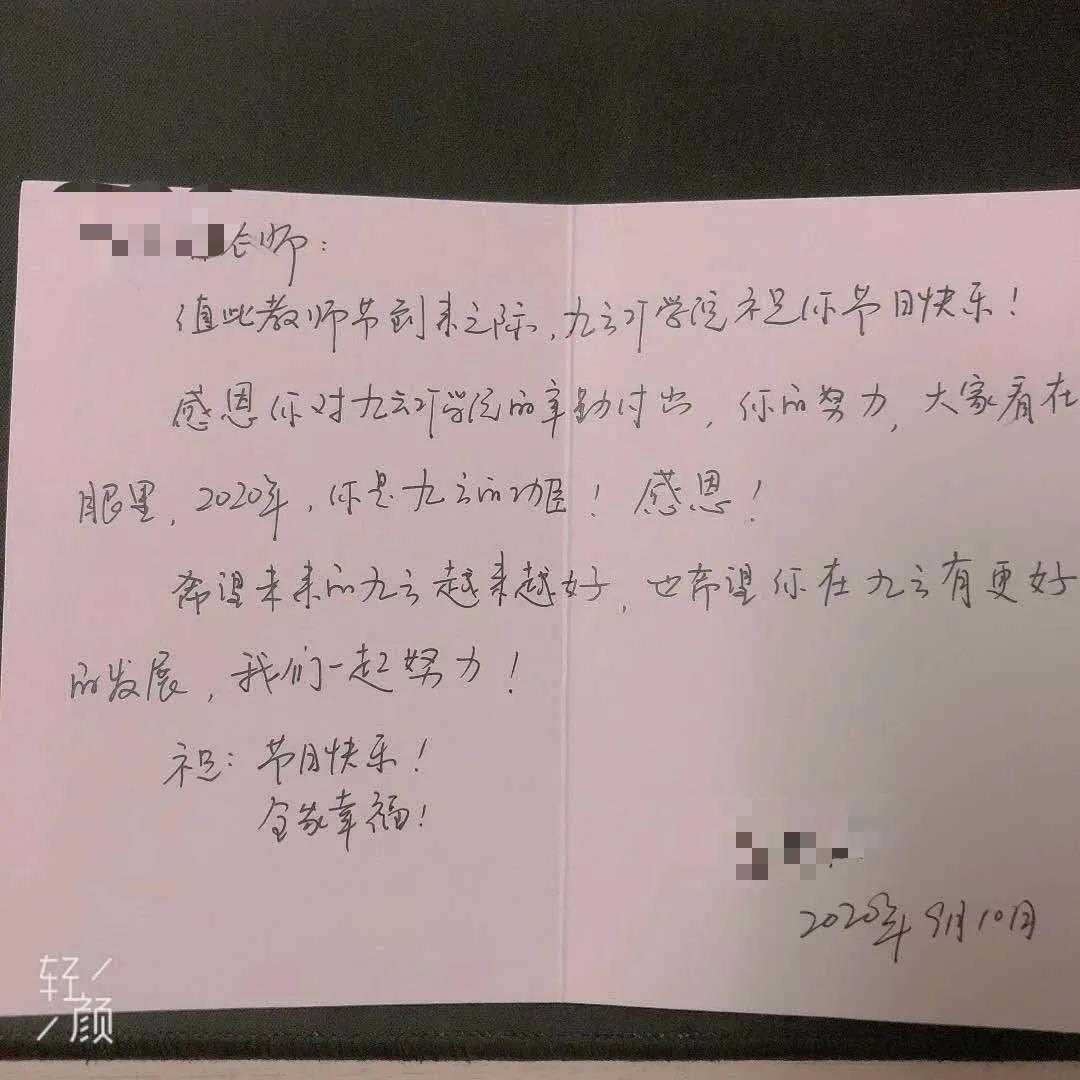 师：
值此教师节到来之际，九云可学院祝你节日快乐！
感恩你对九云可学院的辛勤付出，你的努力，大家看在
眼里，2020年，你是九云的功臣！感恩！
希望未来的九云越来越好，也希望你在九云有更好
的发展，我们一起努力！
祝：节日快乐！
全家幸福！
2020年9月10日
轻颜